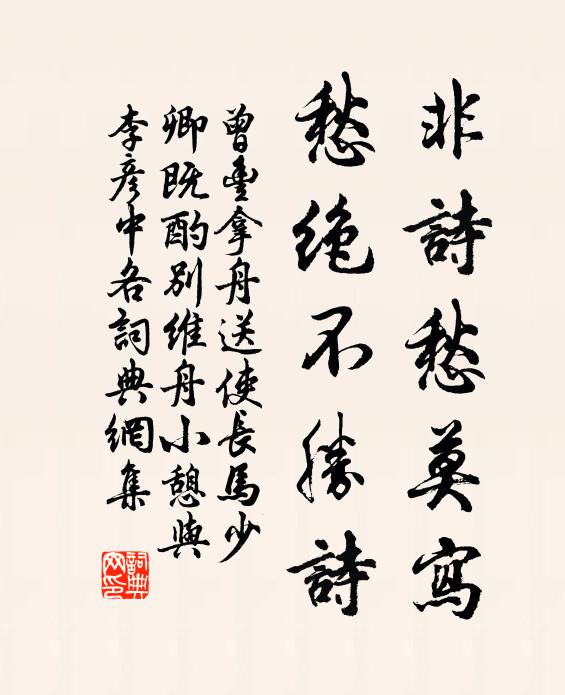 非詩愁莫寫
愁絶不勝詩
曾豐拿舟送使長馬少
卿既酌别維舟小憩與
李彦中各詞典網集
詞典
网印